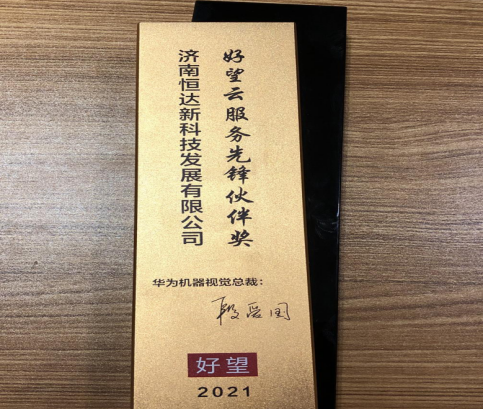 好望云服务先锋伙伴奖
济南恒达新科技发展有限公司
华为机器视觉总裁：
段爱国
好望
2021